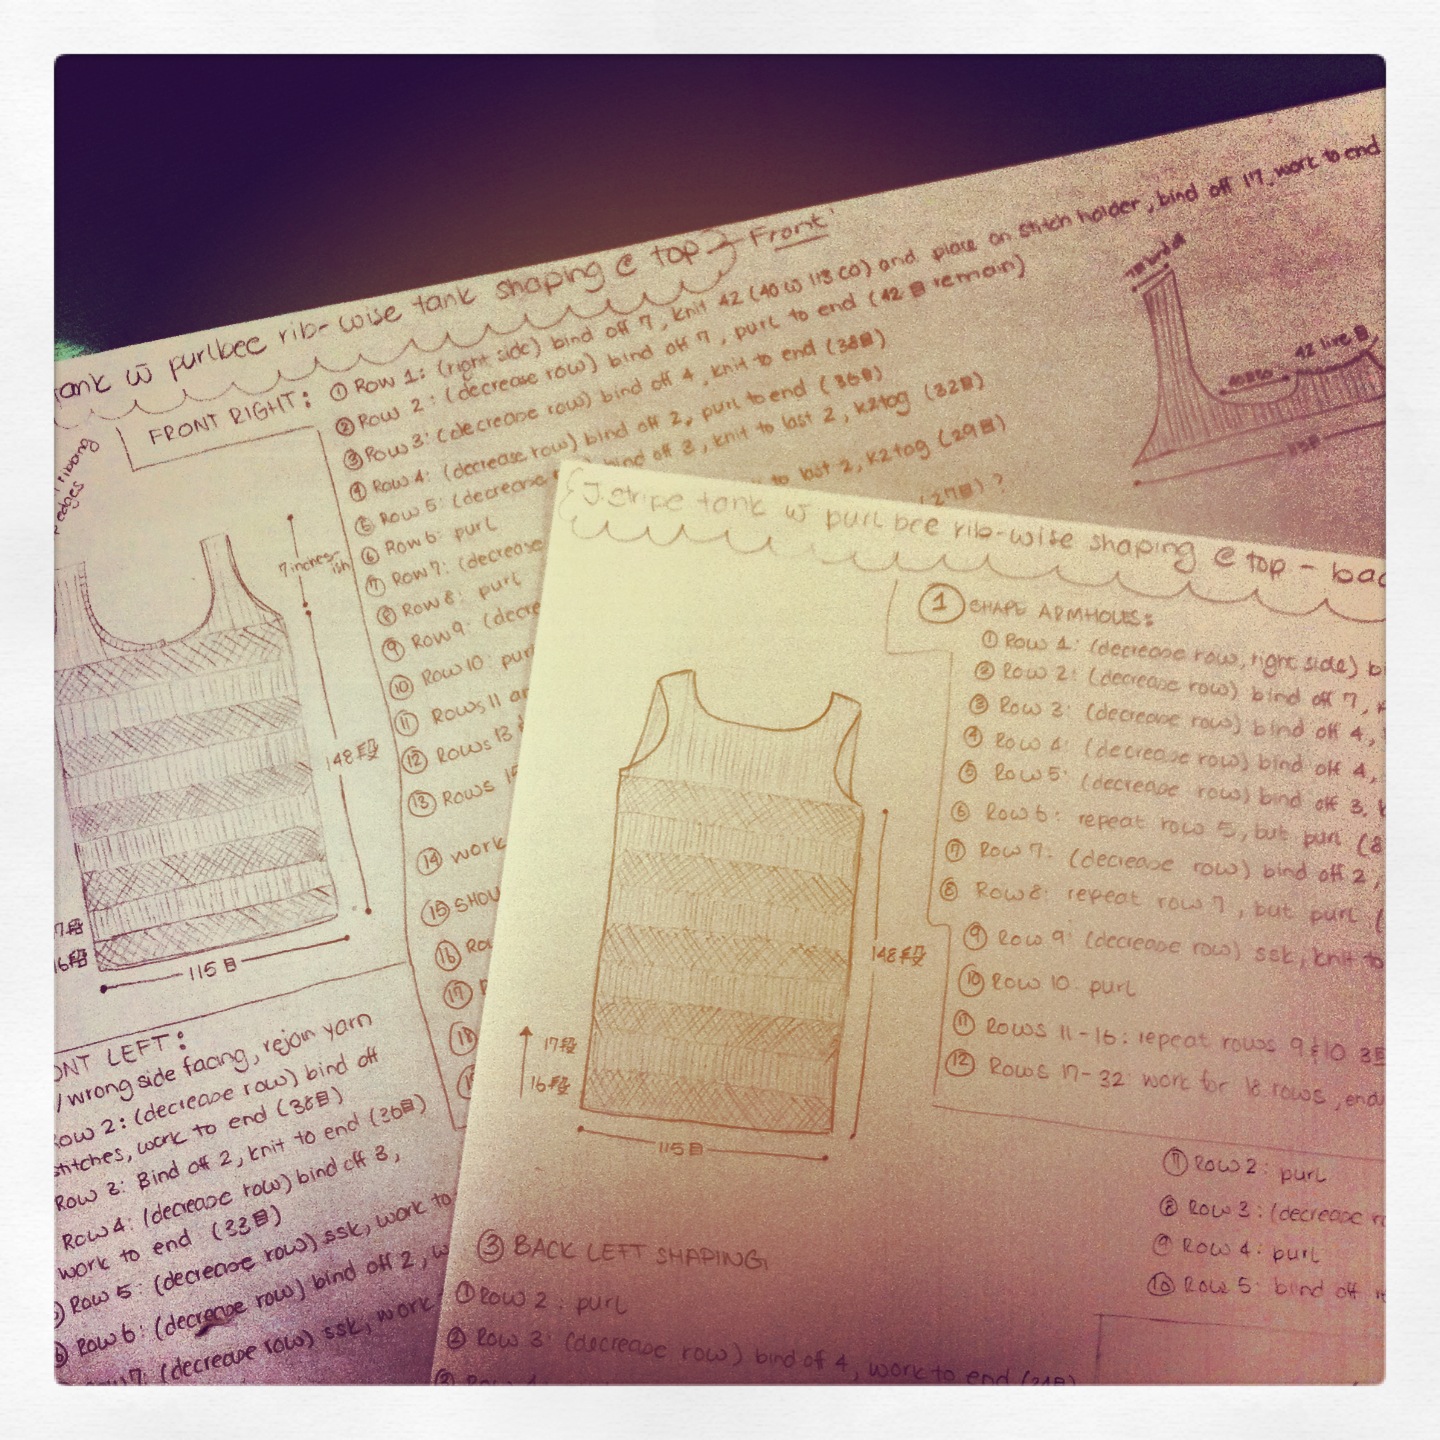 tank w̄ purlbee rib-wise tank shaping @ top - Front
FRONT RIGHT:
① Row 1: (right side) bind off 7, knit 42 (40 w 113 CO) and place on stitch holder, bind off 17, work to end
② Row 2: (decrease row) bind off 7, purl to end (42目 remain)
③ Row 3: (decrease row) bind off 4, knit to end (38目)
④ Row 4: (decrease row) bind off 2, purl to end (36目)
⑤ Row 5: (decrease bind off 3, knit to last 2, k2tog (32目)
⑥ Row 6: purl
⑦ Row 7: (decrease to last 2, k2tog (29目)
⑧ Row 8: purl (27目)?
⑨ Row 9: (decre
⑩ Row 10: purl
⑪ Rows 11 an
⑫ Rows 13
⑬ Rows 15
⑭ work
⑮ SHOU
⑯ Ro
⑰
⑱
edges
7 inches-ish
148段
17段
16段
115目
42 live目
FRONT LEFT:
/ wrong side facing, rejoin yarn
Row 2: (decrease row) bind off
stitches, work to end (38目)
Row 3: Bind off 2, knit to end (36目)
Row 4: (decrease row) bind off 3,
work to end (33目)
Row 5: (decrease row) ssk, work to
Row 6: (decrease row) bind off 2, w
Row 7: (decrease row) ssk, work
J.Stripe tank w̄ purlbee rib-wise shaping @ top - bac
① SHAPE ARMHOLES:
① Row 1: (decrease row, right side) b
② Row 2: (decrease row) bind off 7,
③ Row 3: (decrease row) bind off 4,
④ Row 4: (decrease row) bind off 4,
⑤ Row 5: (decrease row) bind off 3, k
⑥ Row 6: repeat row 5, but purl (8
⑦ Row 7: (decrease row) bind off 2,
⑧ Row 8: repeat row 7, but purl (
⑨ Row 9: (decrease row) ssk, knit to
⑩ Row 10: purl
⑪ Rows 11-16: repeat rows 9 & 10 3
⑫ Rows 17-32: work for 18 rows, end
148段
17段
16段
115目
③ BACK LEFT SHAPING
① Row 2: purl
② Row 3: (decrease row) bind off 4, work to end
⑦ Row 2: purl
⑧ Row 3: (decrease r
⑨ Row 4: purl
⑩ Row 5: bind off